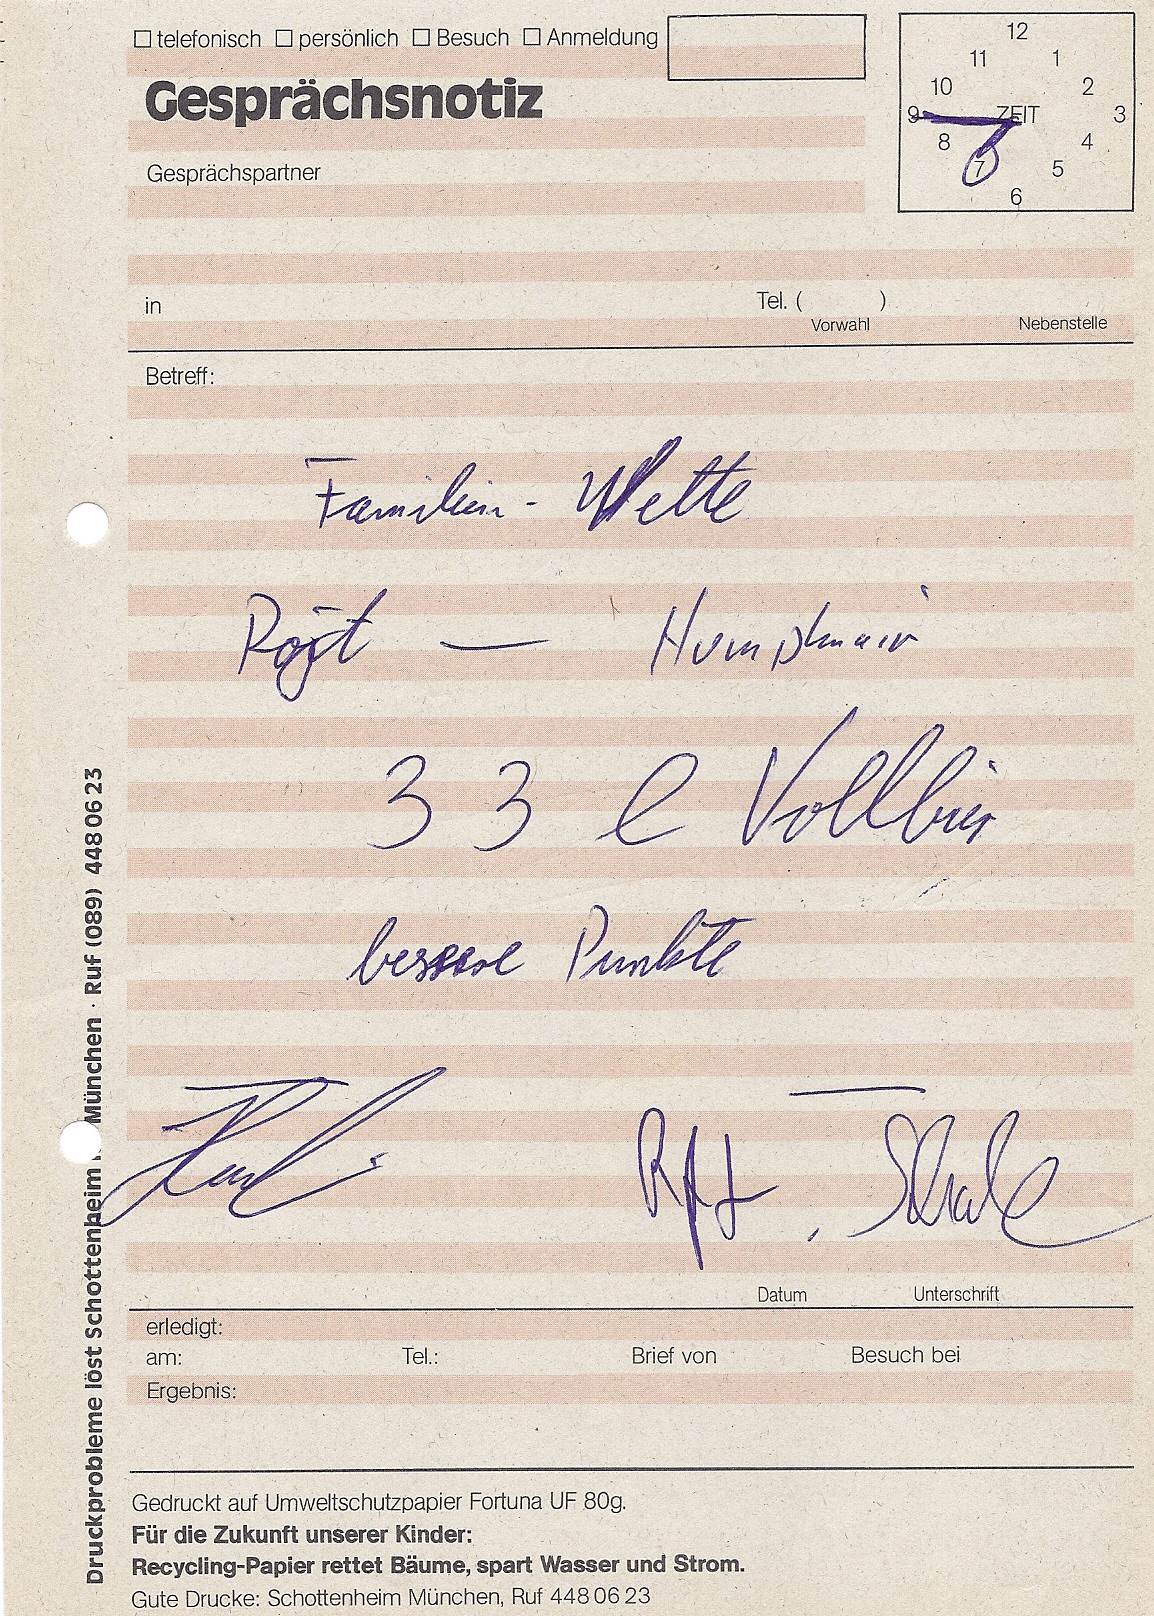 ☐ telefonisch ☐ persönlich ☐ Besuch ☐ Anmeldung
Gesprächsnotiz
Gesprächspartner
12
11 1
10 2
9 ZEIT 3
8 4
7 5
6
in Tel. ( )
Vorwahl Nebenstelle
Betreff:
Familien - Wette
—
33 l Vollbier
bessere Punkte
Datum Unterschrift
erledigt:
am: Tel.: Brief von Besuch bei
Ergebnis:
Gedruckt auf Umweltschutzpapier Fortuna UF 80g.
Für die Zukunft unserer Kinder:
Recycling-Papier rettet Bäume, spart Wasser und Strom.
Gute Drucke: Schottenheim München, Ruf 448 06 23
Druckprobleme löst Schottenheim München · Ruf (089) 448 06 23